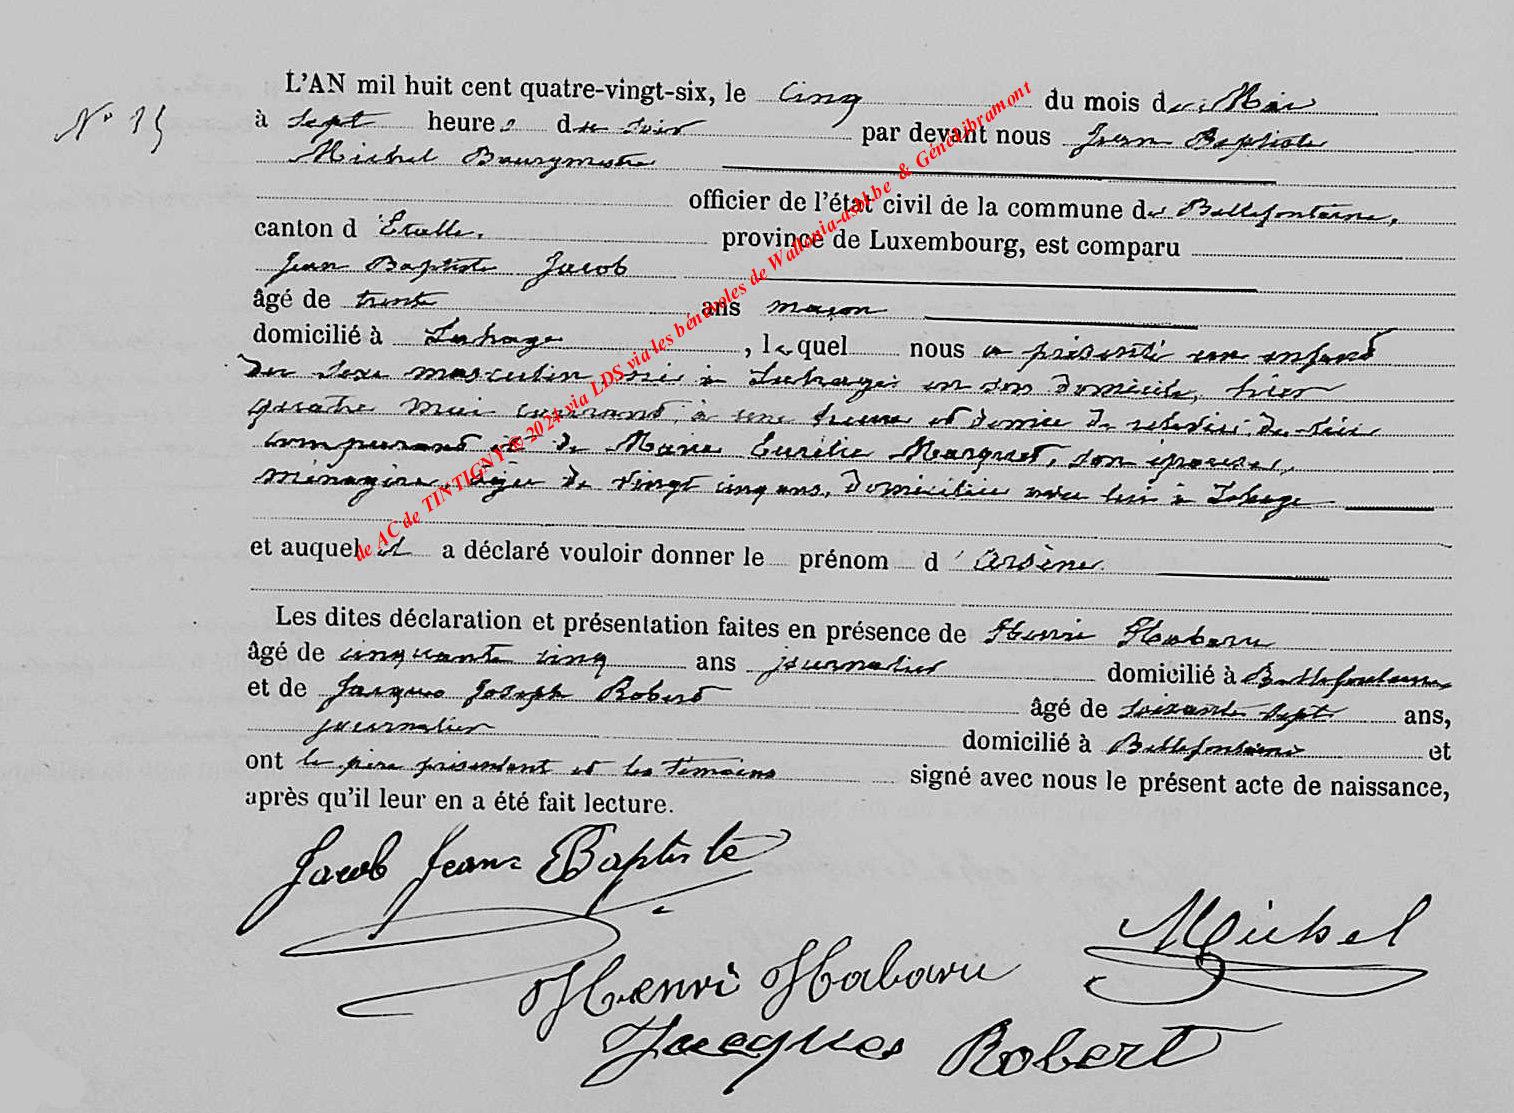 N° 15
L'AN mil huit cent quatre-vingt-six, le cinq du mois de Mai
à sept heures du soir par devant nous Jean Baptiste
Michel Bourgmestre
officier de l'état civil de la commune de Bellefontaine,
canton d'Etalle, province de Luxembourg, est comparu
Jean Baptiste Jacob
âgé de trente ans maçon
domicilié à Lahage, lequel nous a présenté un enfant
du sexe masculin né à Lahage en son domicile, hier
quatre mai courant, à une heure et demie de relevée de lui
comparant et de Marie Eurélie Marquet, son épouse,
ménagère, âgée de vingt cinq ans, domiciliée avec lui à Lahage
et auquel il a déclaré vouloir donner le prénom d'Arsène.
Les dites déclaration et présentation faites en présence de Henri Habaru
âgé de cinquante cinq ans journalier domicilié à Bellefontaine
et de Jacques Joseph Robert âgé de soixante sept ans,
journalier domicilié à Bellefontaine et
ont le père présentant et les témoins signé avec nous le présent acte de naissance,
après qu'il leur en a été fait lecture.
Jacob Jean Baptiste
Michel
Henri Habaru
Jacques Robert
de AC de TINTIGNY © 2024 via LDS via les bénévoles de Wallonia-asbl.be & GénéLibramont